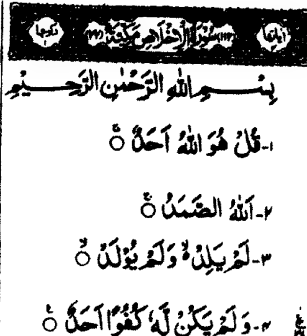 سُوْرَةُ الْاِخْلَاصِ مَكِّيَّةٌ
بِسْمِ اللهِ الرَّحْمٰنِ الرَّحِيْمِ
۱- قُلْ هُوَ اللهُ اَحَدٌ ۚ
۲- اَللهُ الصَّمَدُ ۚ
۳- لَمْ يَلِدْ ۙ وَلَمْ يُوْلَدْ ۙ
۴- وَلَمْ يَكُنْ لَّهٗ كُفُوًا اَحَدٌ ۚ